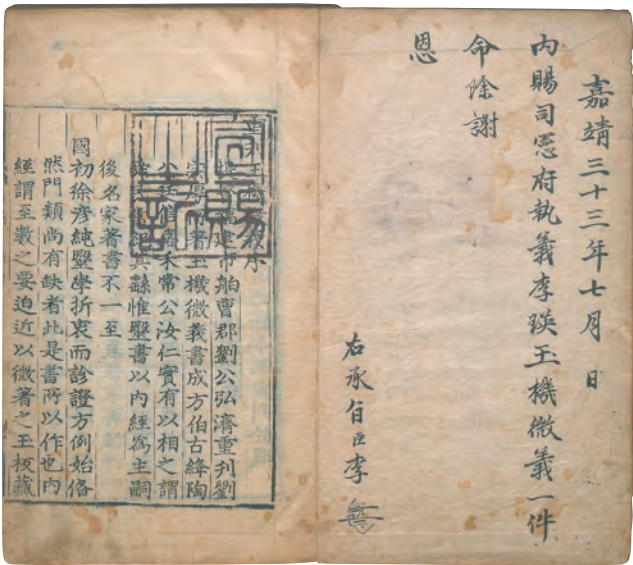 嘉靖三十三年七月 日
内賜司憲府執義李瑛玉機微義一件
命除謝
恩
右承旨臣李
宣賜之記
序
福建市舶曹郡劉公弘濟重刊劉
宗厚所著玉機微義書成方伯古絳陶
公廷信嘉禾常公汝仁實有以相之謂
其繇惟醫書以内經為主嗣
後名家著書不一至
國初徐彦純醫學折衷而診證方例始俻
然門類尚有缺者此是書所以作也内
經謂至數之要迫近以微著之玉板藏